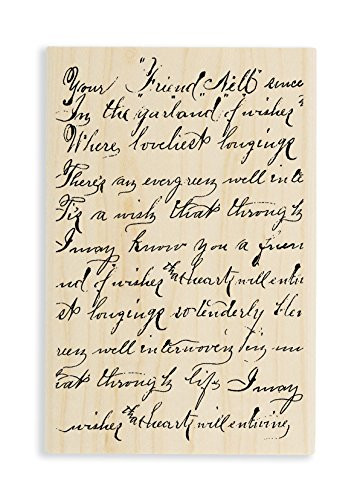 Your "Friend" "Nell" since
In the "garland" of wishes"
Where loveliest longings
There's an evergreen well in te
Tis a wish that through
I may know you a frien
nd of wishes that heart will entwi
st longings so tenderly
reen well interwoven
at through life I may
wishes that heart will entwine